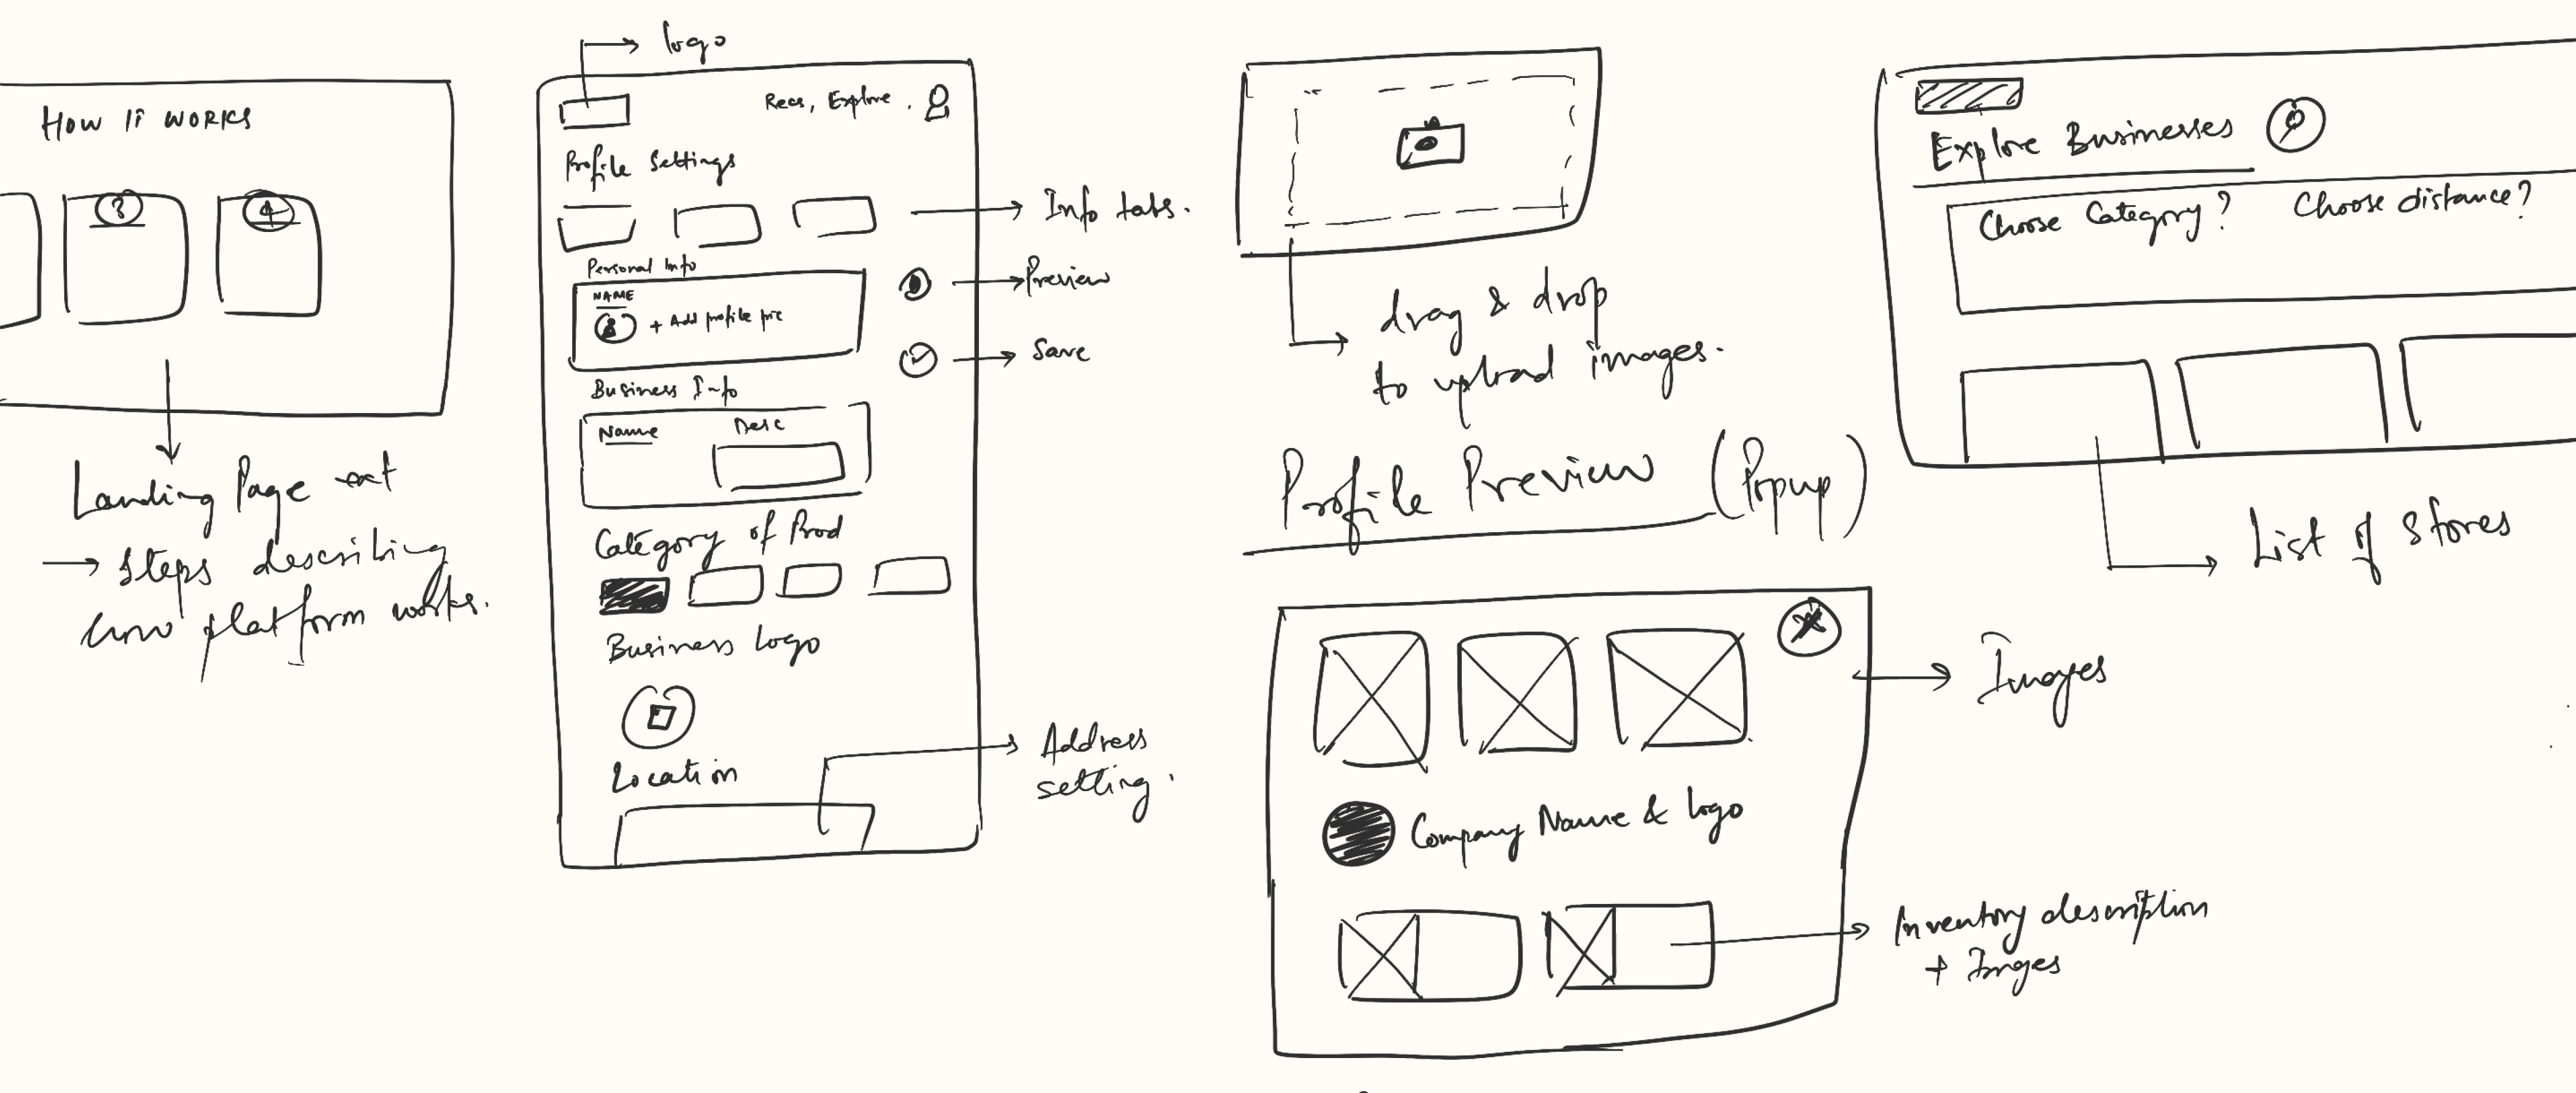 HOW IT WORKS
3
4
Landing Page
→ Steps describing
how platform works.
logo
Recs, Explore.
Profile Settings
Info tabs.
Personal Info
NAME
+ Add profile pic
Preview
Save
Business Info
Name
Desc
Category of Prod
Business Logo
Location
Address
setting.
drag & drop
to upload images.
Profile Preview (Popup)
Images
Company Name & logo
Inventory description
+ Imges
Explore Businesses
Choose Category?
Choose distance?
List of Stores